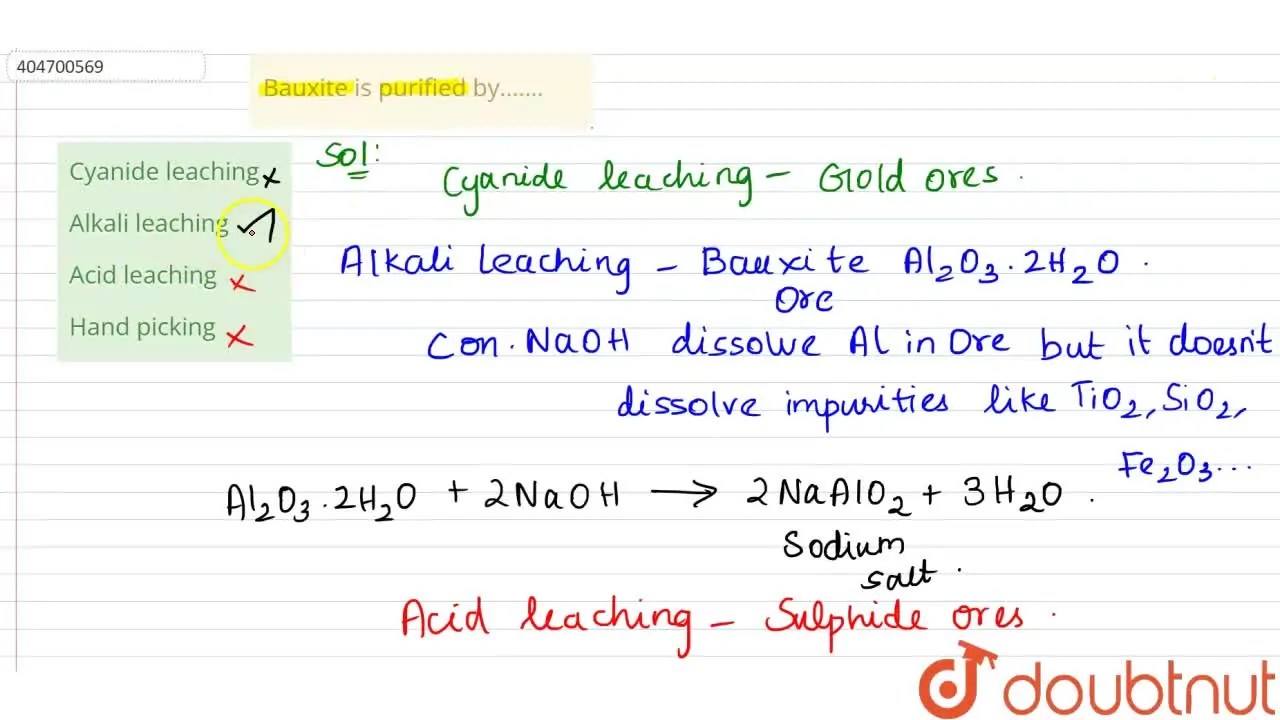 404700569
Bauxite is purified by.......
Cyanide leaching x
Alkali leaching ✓
Acid leaching x
Hand picking x
Sol:
Cyanide leaching - Gold ores.
Alkali leaching - Bauxite Al₂O₃.2H₂O.
Ore
Con. NaOH dissolve Al in Ore but it doesn't
dissolve impurities like TiO₂, SiO₂,
Fe₂O₃...
Al₂O₃.2H₂O + 2NaOH → 2NaAlO₂ + 3H₂O.
Sodium
salt.
Acid leaching - Sulphide ores.
doubtnut